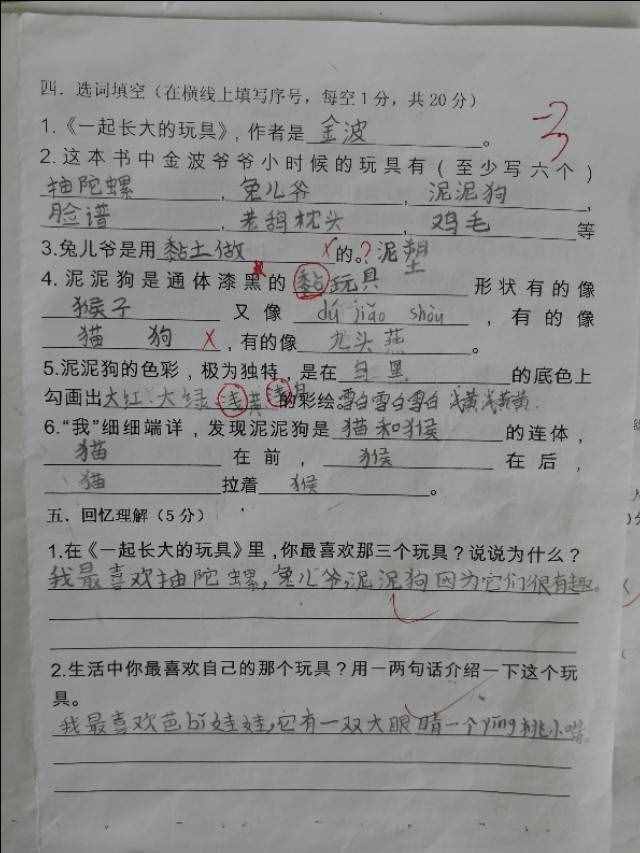 四．选词填空（在横线上填写序号，每空1分，共20分）
-3
1.《一起长大的玩具》，作者是 金波 。
2.这本书中金波爷爷小时候的玩具有（至少写六个）
抽陀螺 ，兔儿爷 ，泥泥狗 ，
脸谱 ，老鸹枕头 ，鸡毛 等
3.兔儿爷是用 黏土做 的。？泥塑
4.泥泥狗是通体漆黑的 黏玩具 形状有的像
猴子 又像 dú jiǎo shòu ，有的像
猫 狗 ，有的像 九头燕 。
5.泥泥狗的色彩，极为独特，是在 乌黑 的底色上
勾画出大红、大绿 浅黄 的彩绘 雪白雪白雪白 浅黄浅黄
6.“我”细细端详，发现泥泥狗是 猫和猴 的连体，
猫 在前， 猴 在后，
猫 拉着 猴 。
五、回忆理解（5分）
1.在《一起长大的玩具》里，你最喜欢那三个玩具？说说为什么？
我最喜欢抽陀螺，兔儿爷，泥泥狗因为它们很有趣。
2.生活中你最喜欢自己的那个玩具？用一两句话介绍一下这个玩
具。
我最喜欢芭bǐ娃娃，它有一双大眼睛一个yīng桃小嘴。